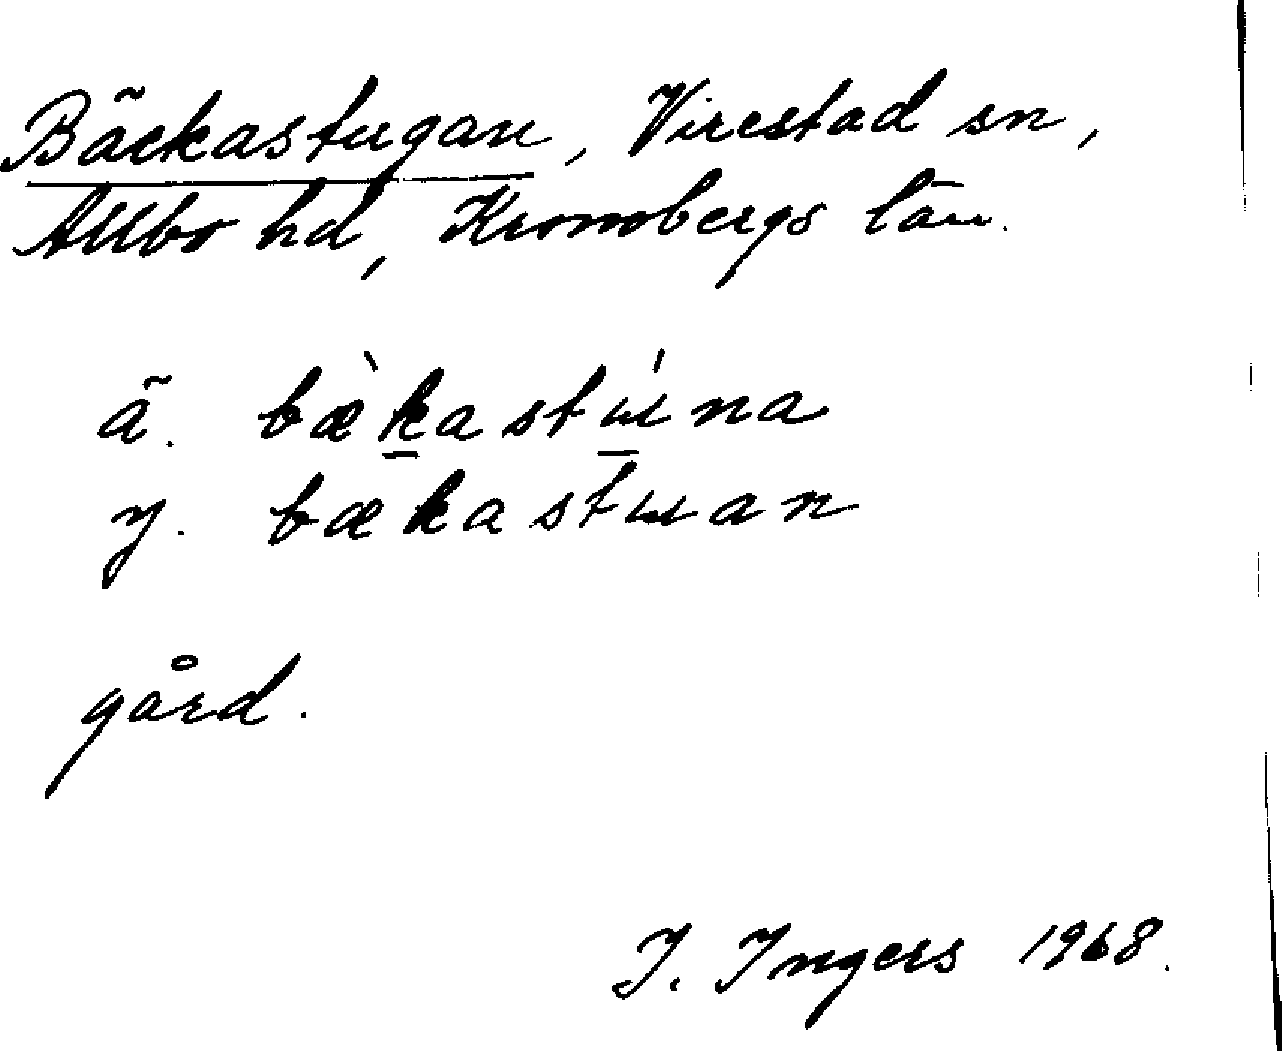 Bäckastugan, Virestad sn,
Allbo hd, Kronobergs län.
ä. bæ̀k̲ast̲ɯ́na
y. bækastɯan
gård.
I. Ingers 1968.